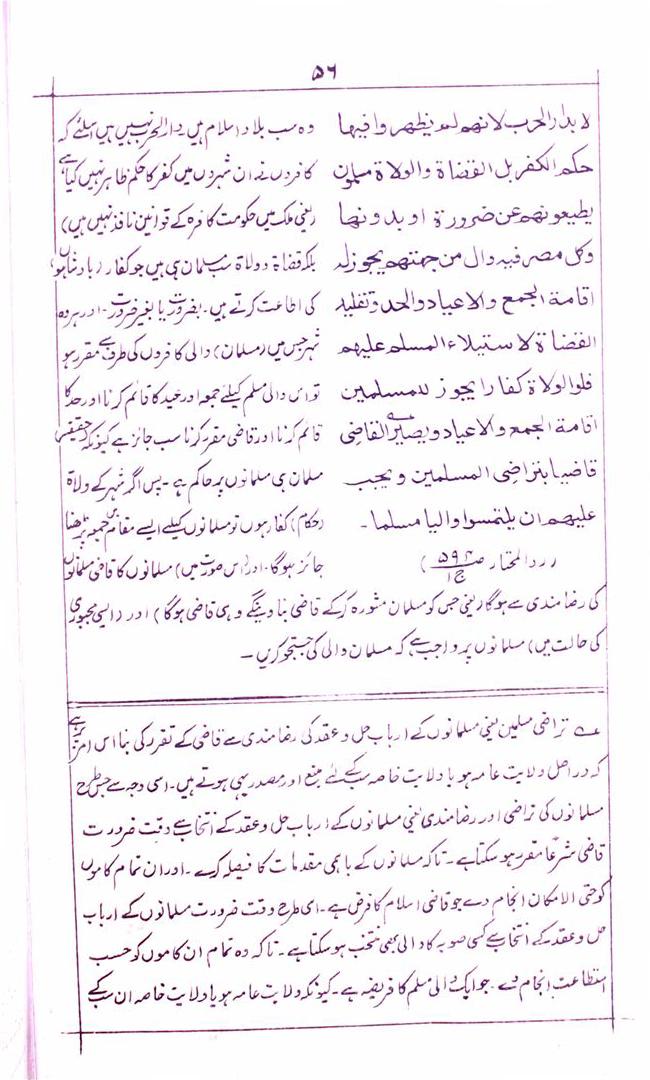 ۵۶
لا بدار الحرب لانهم لم يظهر وافيها
حكم الكفر بل القضاة والولاة مسلمون
يطيعونهم عن ضرورة او بدونها
وكل مصر فيه وال من جهتهم يجوز له
اقامة الجمع والاعياد والحد وتقليد
القضاة لاستيلاء المسلم عليهم
فلو الولاة كفارا يجوز للمسلمين
اقامة الجمع والاعياد ويصير القاضى
قاضيا بتراضى المسلمين ويجب
عليهم ان يلتمسوا واليا مسلما۔
(رد المحتار ص۵۹۴ ج۱)
وہ سب بلاد اسلام ہیں دار الحرب نہیں ہیں اسلئے کہ
کافروں نے ان شہروں میں کفر کا حکم ظاہر نہیں کیا ہے
(یعنی ملک میں حکومت کافرہ کے قوانین نافذ نہیں ہیں)
بلکہ قضاۃ و ولاۃ سب مسلمان ہی ہیں جو کفار (بادشاہوں)
کی اطاعت کرتے ہیں۔ بضرورت یا بغیر ضرورت۔ اور ہر وہ
شہر جس میں (مسلمان) والی کافروں کی طرف سے مقرر ہو
تو اس والی مسلم کیلئے جمعہ اور عید کا قائم کرنا اور حد کا
قائم کرنا اور قاضی مقرر کرنا سب جائز ہے کیونکہ حقیقۃً
مسلمان ہی مسلمانوں پر حاکم ہے۔ پس اگر شہر کے ولاۃ
(حکام) کفار ہوں تو مسلمانوں کیلئے ایسے مقام میں جمعہ پڑھنا
جائز ہوگا۔ اور (اس صورت میں) مسلمانوں کا قاضی مسلمانوں
کی رضامندی سے ہوگا (یعنی جس کو مسلمان مشورہ کر کے قاضی بناوینگے وہی قاضی ہوگا) اور (ایسی مجبوری
کی حالت میں) مسلمانوں پر واجب ہے کہ مسلمان والی کی جستجو کریں۔
؎ تراضی مسلمین یعنی مسلمانوں کے ارباب حل و عقد کی رضامندی سے قاضی کے تقرر کی بنا اس امر پر ہے
کہ در اصل ولایت عامہ ہو یا ولایت خاصہ سب کے لئے منبع اور مصدر یہی ہوتے ہیں۔ اسی وجہ سے جس طرح
مسلمانوں کی تراضی اور رضامندی یعنی مسلمانوں کے ارباب حل و عقد کے انتخاب سے وقت ضرورت
قاضی شرعاً مقرر ہو سکتا ہے۔ تاکہ مسلمانوں کے باہمی مقدمات کا فیصلہ کرے۔ اور ان تمام کاموں
کو حتی الامکان انجام دے جو قاضی اسلام کا فرض ہے۔ اسی طرح وقت ضرورت مسلمانوں کے ارباب
حل و عقد کے انتخاب سے کسی صوبہ کا والی بھی منتخب ہو سکتا ہے۔ تاکہ وہ تمام ان کاموں کو حسب
استطاعت انجام دے۔ جو ایک والی مسلم کا فریضہ ہے۔ کیونکہ ولایت عامہ ہو یا ولایت خاصہ ان سب کے